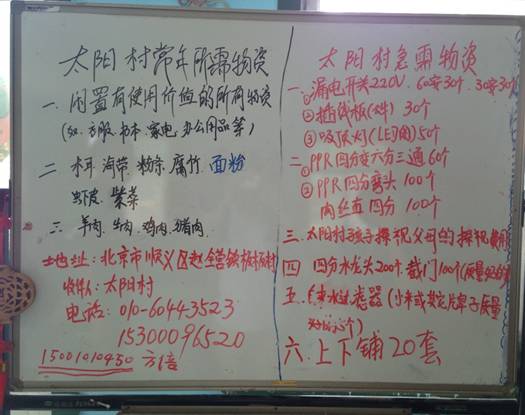 太阳村常年所需物资
一 闲置有使用价值的所有物资
(如:衣服 书本 家电 办公用品等)
二 木耳 海带 粉条 腐竹 面粉
虾皮 紫菜
三 羊肉 牛肉 鸡肉 猪肉
地址:北京市顺义区赵全营镇板桥村
收件人:太阳村
电话:010-60443523
15300096520
15001010450
太阳村急需物资
一 ①漏电开关220V 60安30个 30安30个
②插线板(6件) 30个
③吸顶灯(LED的)50个
二 ①PPR四分变六分三通60个
②PPR四分弯头 100个
内丝直四分 100个
三 太阳村孩子探视父母的探视费用
四 四分水龙头200个 截门100个(质量好的)
五 自来水过滤器(小米或其它牌子质量
六 上下铺20套